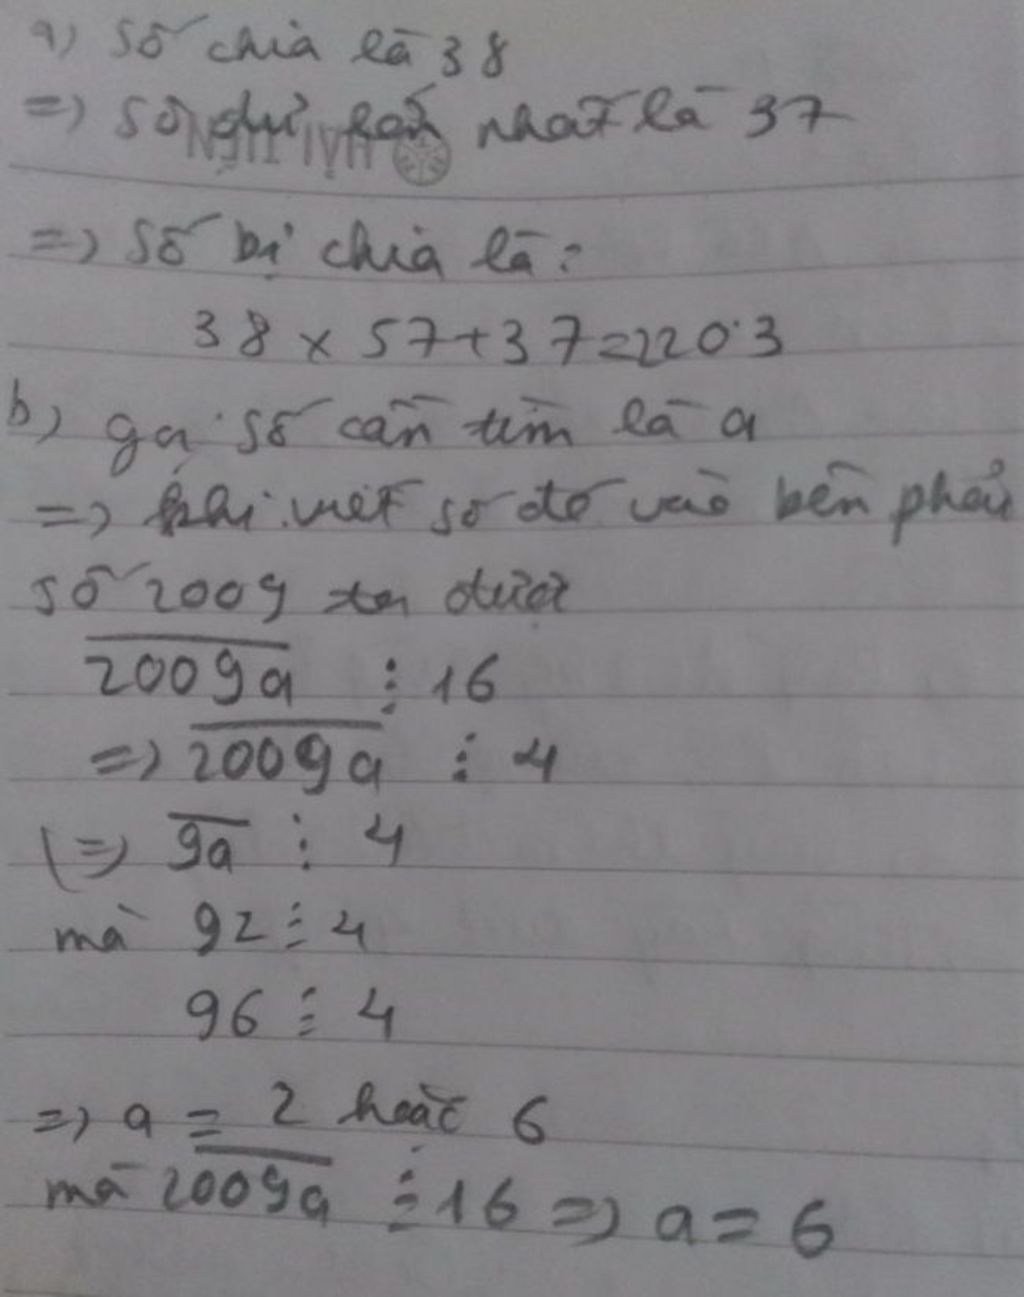 a) số chia là 38
=> số dư lớn nhất là 37
=> số bị chia là:
38 x 57 + 37 = 2203
b) gọi số cần tìm là a
=> khi viết số đó vào bên phải
số 2009 ta được
2009a ⋮ 16
=> 2009a ⋮ 4
(=> 9a ⋮ 4
mà 92 ⋮ 4
96 ⋮ 4
=> a = 2 hoặc 6
mà 2009a ⋮ 16 => a = 6